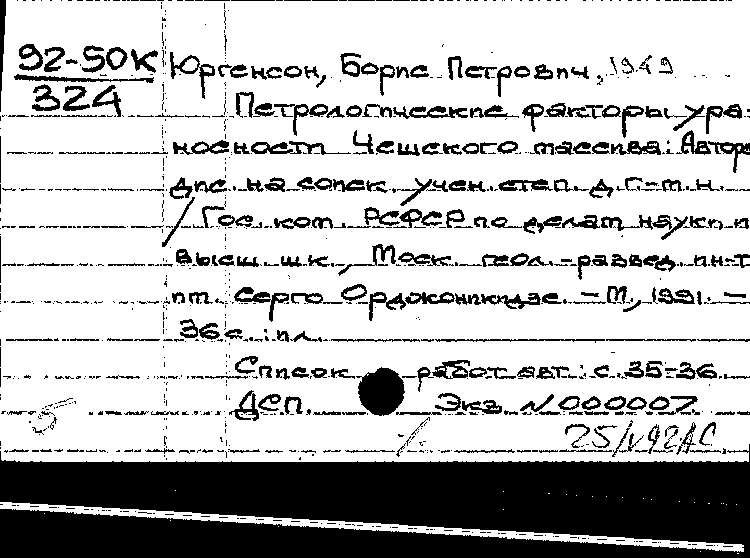 92-50К
324
Юргенсон, Борис Петрович, 1949
Петрологические факторы ура-
носности Чешского массива: Автореф
дис. на соиск. учен. степ. д. г.-м. н.
/ Гос. ком. РСФСР по делам науки и
высш. шк., Моск. геол.-развед. ин-т
им. Серго Орджоникидзе. – М., 1991. –
36 с. : ил.
Список работ авт.: с. 35-36.
ДСП. Экз. N 000007.
5 25/V92